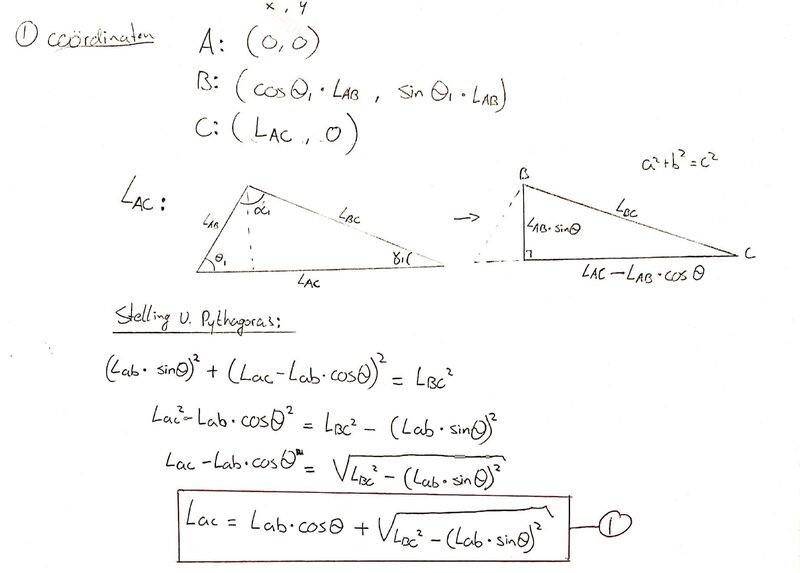 x , y
① coördinaten A: (0,0)
B: (cosθ₁ · L_AB , sin θ₁ · L_AB)
C: (L_AC , 0)
a²+b²=c²
L_AC:
L_AB α₁ L_BC
θ₁ γ₁
L_AC
→
B
L_BC
L_AB · sinθ
C
L_AC – L_AB · cos θ
Stelling v. Pythagoras:
(Lab · sinθ)² + (Lac – Lab · cosθ)² = L_BC²
Lac² – Lab · cosθ² = L_BC² – (Lab · sinθ)²
Lac – Lab · cosθ = √L_BC² – (Lab · sinθ)²
Lac = Lab · cosθ + √L_BC² – (Lab · sinθ)² ①